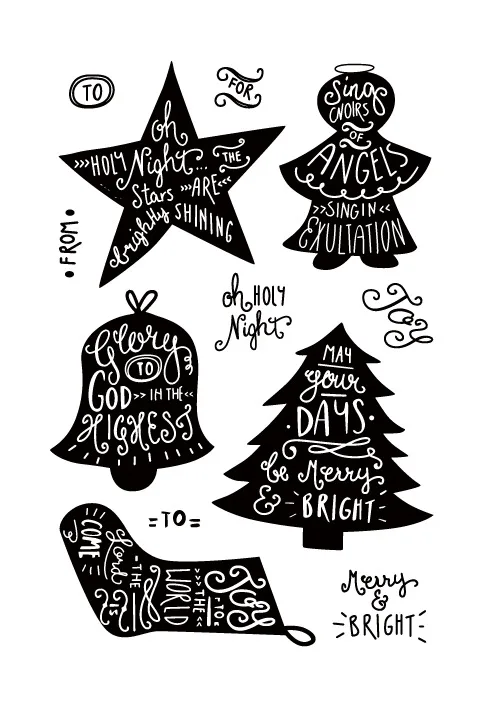 TO
oh
HOLY Night...
Stars THE ARE
brightly SHINING
FOR
Sing
CHOIRS
OF
ANGELS
SING IN
EXULTATION
FROM
Glory
TO
GOD IN THE
HIGHEST
oh HOLY
Night
Joy
MAY
your
DAYS
be Merry
& BRIGHT
=TO=
Joy
TO
THE
WORLD
THE
Lord
IS
COME
Merry
&
BRIGHT